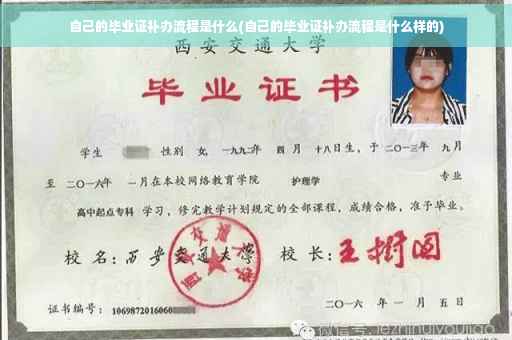 自己的毕业证补办流程是什么(自己的毕业证补办流程是什么样的)
西安交通大学
毕业证书
学生 性别 女, 一九九二年 四月 十八日生, 于二〇一三年 九月
至 二〇一六年 一月在本校网络教育学院 护理学 专业
高中起点专科 学习, 修完教学计划规定的全部课程, 成绩合格, 准予毕业。
校名: 西安交通大学 校长: 王树国
西安交通大学
证书编号: 1069872016060
二〇一六年 一月 五日
微信号: jezhinuiyoujiao